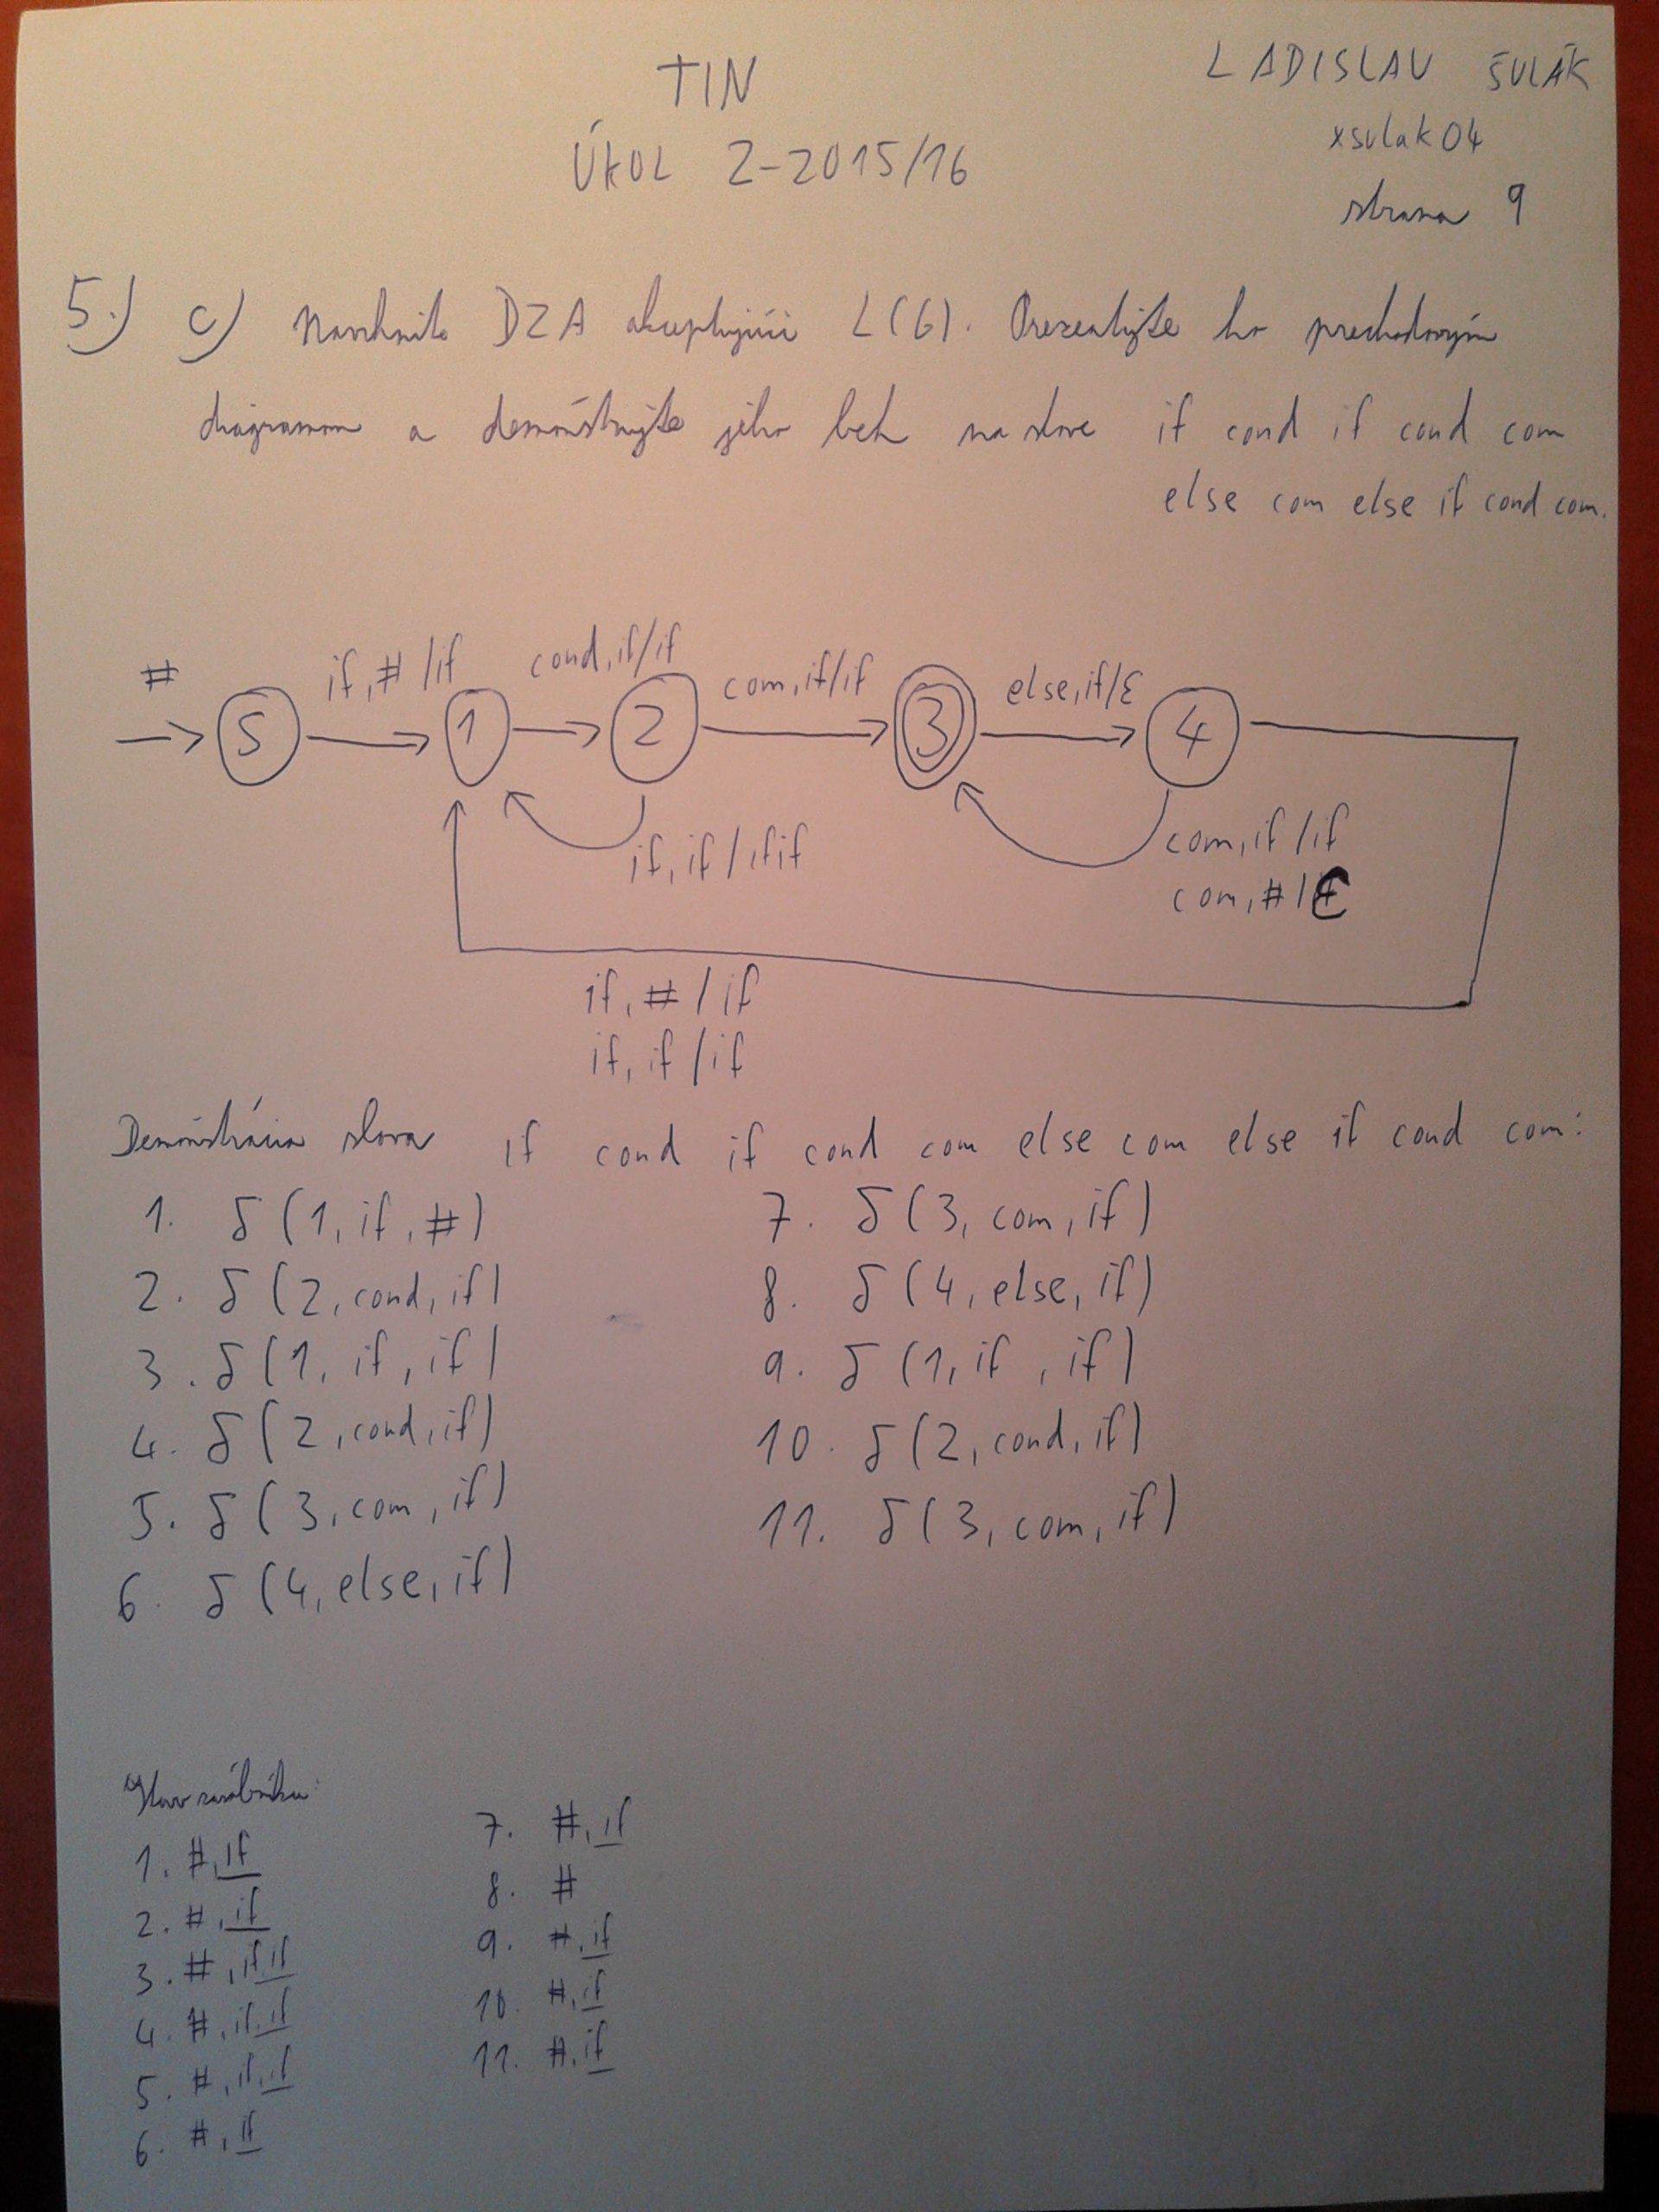 TIN
ÚKOL 2-2015/16
LADISLAV ŠULÁK
xsulak04
strana 9
5.) c) Navrhnite DZA akceptujúci L(G). Prezentujte ho prechodovým
diagramom a demonštrujte jeho beh na slove if cond if cond com
else com else if cond com.
#
if, # /if
cond, if/if
com, if/if
else, if/ε
S
1
2
3
4
if, if / ifif
com, if / if
com, # / ε
if, # / if
if, if / if
Demonštrácia slova if cond if cond com else com else if cond com:
1. δ (1, if, #)
2. δ (2, cond, if)
3. δ (1, if, if)
4. δ (2, cond, if)
5. δ (3, com, if)
6. δ (4, else, if)
7. δ (3, com, if)
8. δ (4, else, if)
9. δ (1, if, if)
10. δ (2, cond, if)
11. δ (3, com, if)
Stav zásobníku:
1. #, if
2. #, if
3. #, if if
4. #, if, if
5. #, if, if
6. #, if
7. #, if
8. #
9. #, if
10. #, if
11. #, if